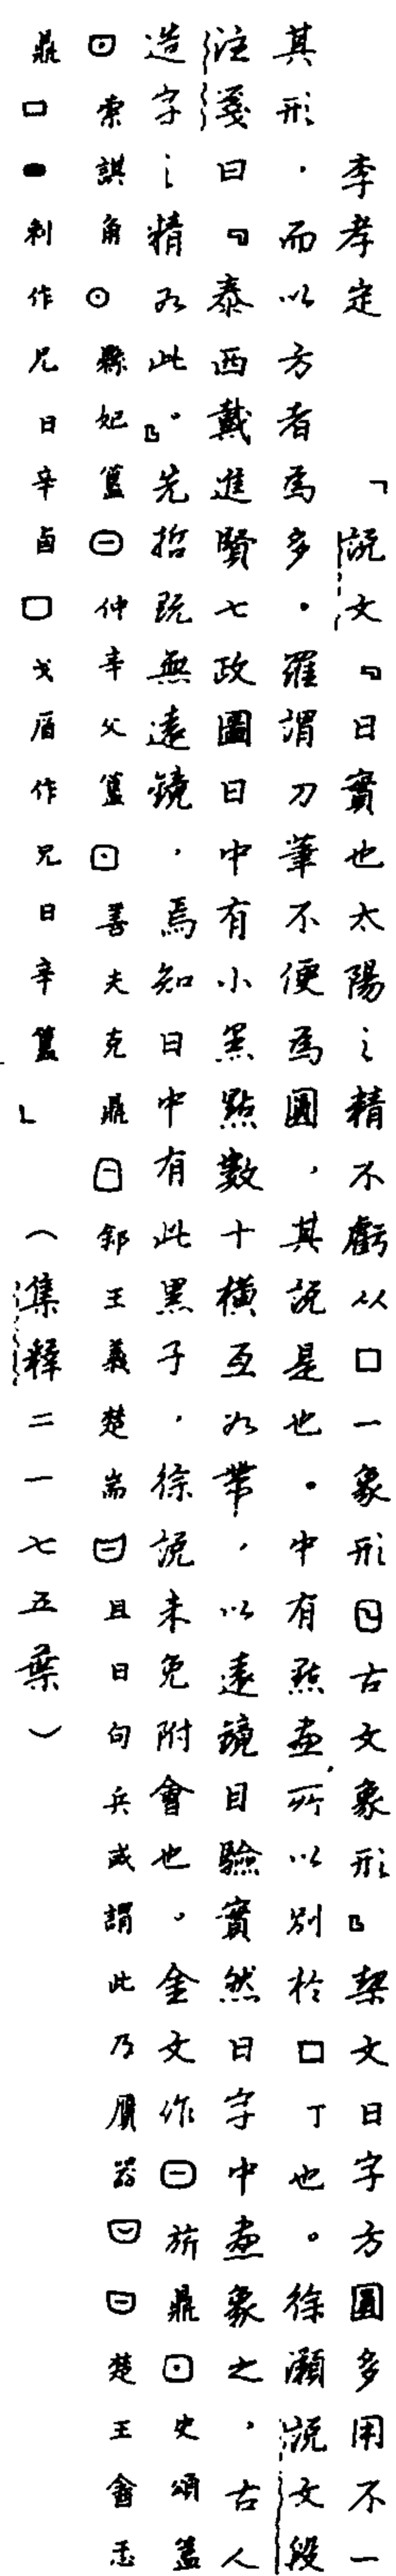 李孝定 「說文『日實也太陽之精不虧从囗一象形古文象形』契文日字方圓多用不一
其形，而以方者為多。羅謂刀筆不便為圓，其說是也。中有點畫，所以別於囗丁也。徐灝說文段
注箋曰『泰西戴進賢七政圖日中有小黑點數十橫互如帶，以遠鏡目驗實然日字中畫象之，古人
造字之精如此』。先哲既無遠鏡，焉知日中有此黑子，徐說未免附會也。金文作旂鼎史頌簋
索諆角縣妃簋仲辛父簋善夫克鼎郐王義楚耑且日句兵或謂此乃贗器楚王酓志
鼎剌作兄日辛卣戈厝作兄日辛簋」（集釋二一七五葉）